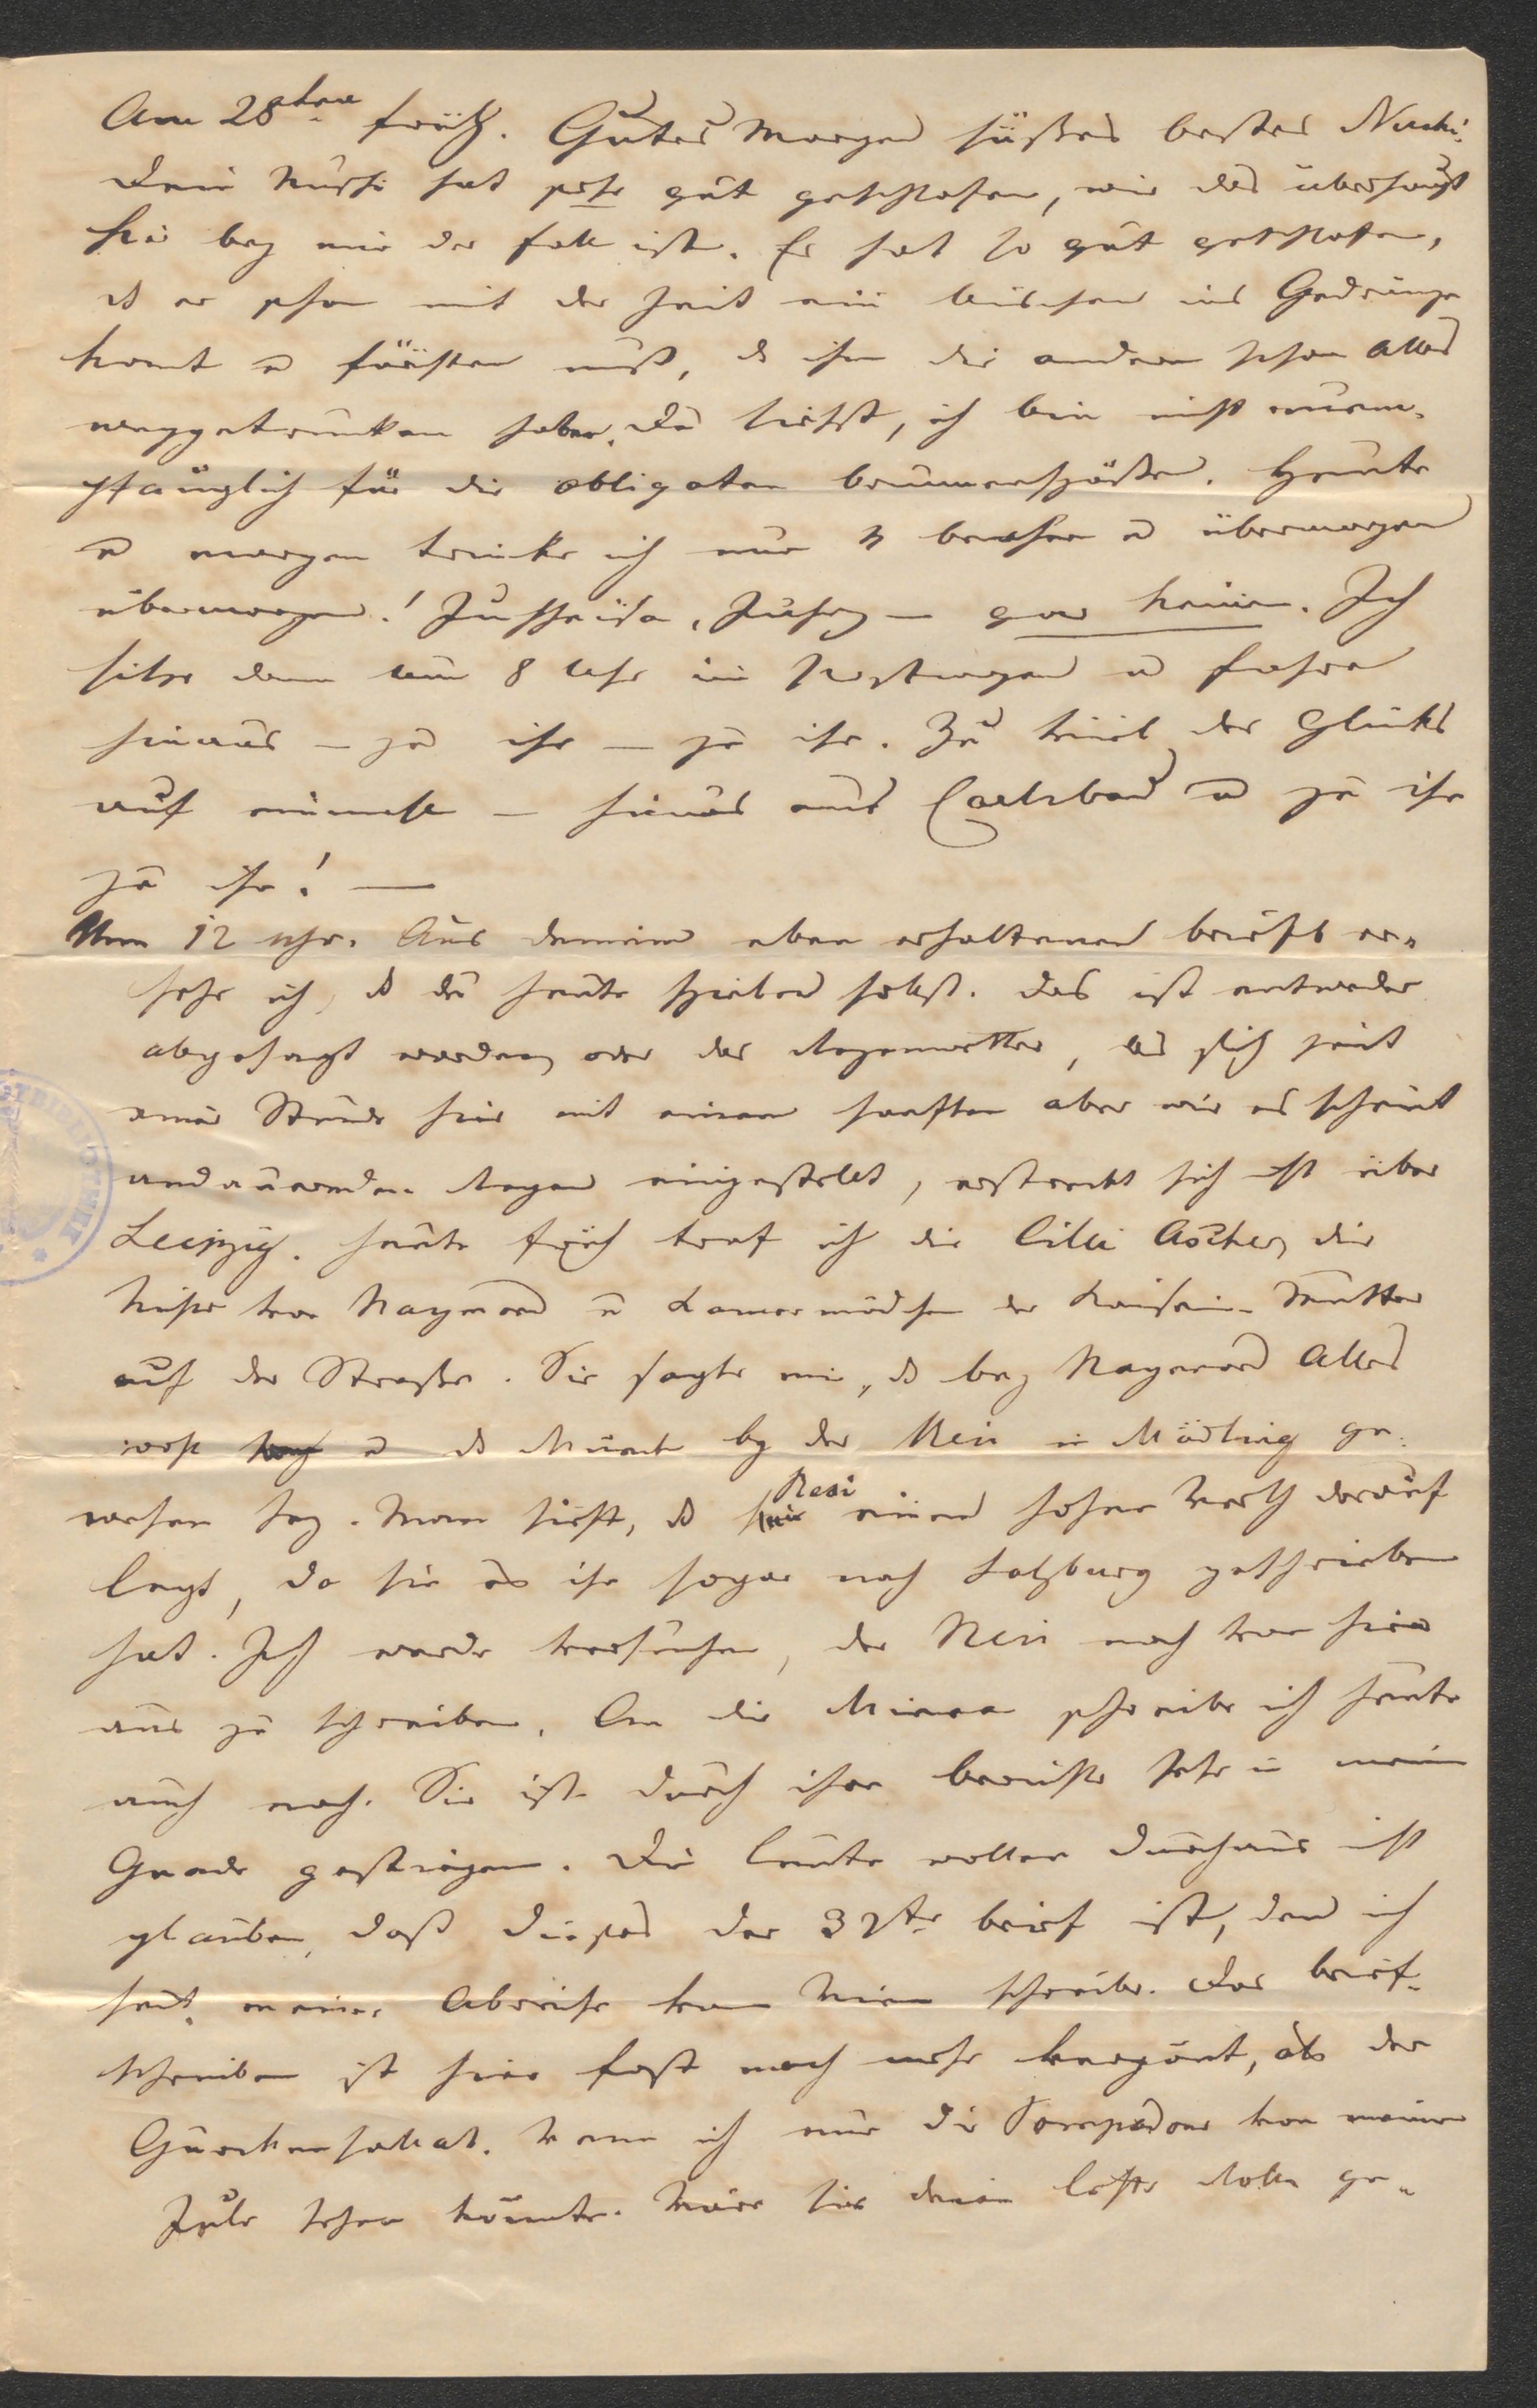 Am 28ten früh. Guten Morgen süßes bestes Nuschi.
Dein Nuschi hat sehr gut geschlafen, wie das überhaupt
hier bey mir der Fall ist. Er hat so gut geschlafen,
ds er schon mit der Zeit ein bischen ins Gedränge
komt u fürchten muß, ds ihm die andern schon Alles
weggetrunken haben. Du siehst, ich bin nicht unem-
pfänglich für die obligaten Brunnenspäße. Heute
u morgen trinke ich nur 3 Becher u übermorgen
übermorgen! Juchheisa, Juhey – gar keinen. Ich
sitze dann um 8 Uhr im Postwagen u fahre
hinaus – zu ihr – zu ihr. Zu viel des Glücks
auf einmahl – hinaus aus Carlsbad u zu ihr
zu ihr! —
Um 12 Uhr. Aus deinem eben erhaltenen Briefe er-
sehe ich, ds du heute spielen sollst. Das ist entweder
abgesagt worden, oder das Regenwetter, das sich seit
einer Stunde hier mit einem sanften aber wie es scheint
andauernden Regen eingestellt, erstreckt sich nicht über
Leipzig. Heute früh traf ich die Cilli Ascher, die
Nichte von Raymond u Kamermädchen der Kaiserin-Mutter
auf der Straße. Sie sagte mir, ds bey Raymond Alles
wohl u ds bey der Resi in Mödling ge-
wesen sey. Man sieht, ds Resi einen hohen Werth darauf
legt, da sie es ihr sogar nach Salzburg geschrieben
hat. Ich werde versuchen, der Resi noch von hier
aus zu schreiben. An die Minna schreibe ich heute
auch noch. Sie ist durch ihre Berichte sehr in meiner
Gnade gestiegen. Die Leute wollen durchaus nicht
glauben, daß dieses der 32te Brief ist, den ich
seit meiner Abreise von Wien schreibe. Das Brief-
schreiben ist hier fast noch mehr verpönt, als der
Gurkensalat. Wenn ich nur die Pompadour von meiner
Jule sehen könnte. Wäre sie deine letzte Rolle ge-